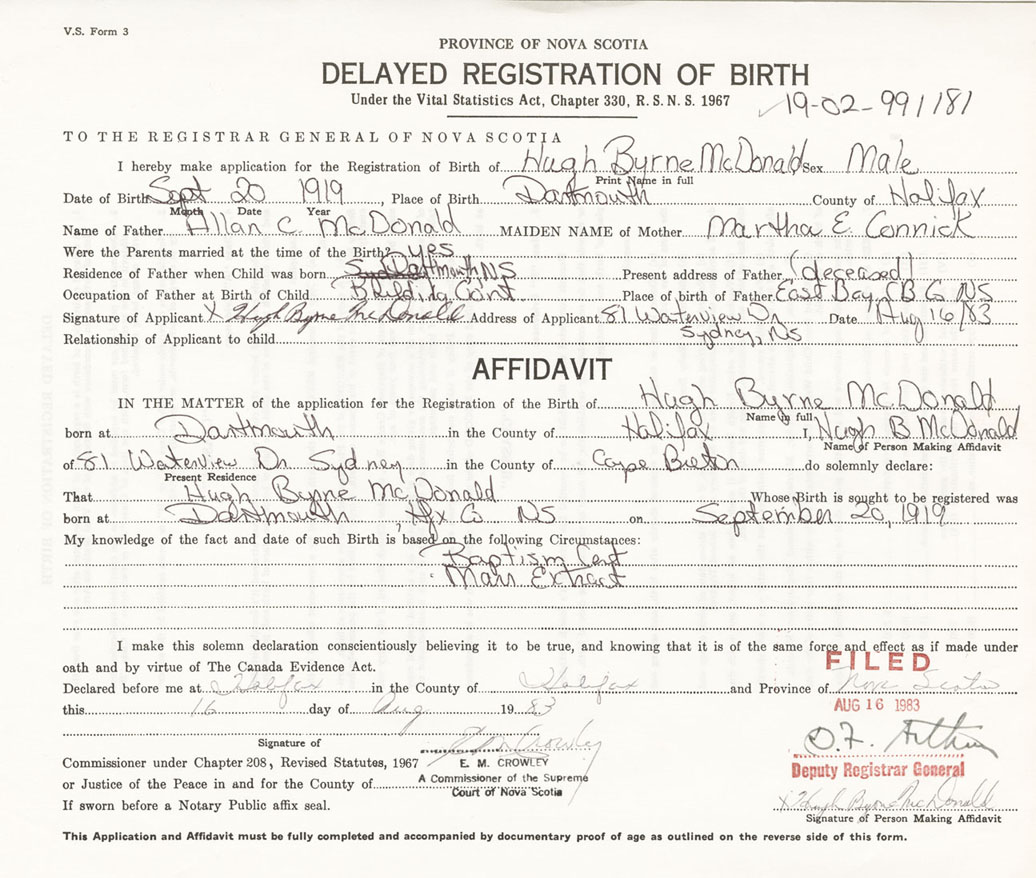 V.S. Form 3
PROVINCE OF NOVA SCOTIA
DELAYED REGISTRATION OF BIRTH
Under the Vital Statistics Act, Chapter 330, R. S. N. S. 1967
19-02-991181
TO THE REGISTRAR GENERAL OF NOVA SCOTIA
I hereby make application for the Registration of Birth of Hugh Byrne McDonald Sex Male
Print Name in full
Date of Birth Sept 20 1919, Place of Birth Dartmouth County of Halifax
Month Date Year
Name of Father Allan C. McDonald MAIDEN NAME of Mother Martha E. Connick
Were the Parents married at the time of the Birth? yes
Residence of Father when Child was born Dartmouth, NS Present address of Father (deceased)
Occupation of Father at Birth of Child Building Cont Place of birth of Father East Bay, CB Co NS
Signature of Applicant X Hugh Byrne McDonald Address of Applicant 81 Waterview Dr Date Aug 16/83
Sydney, NS
Relationship of Applicant to child
AFFIDAVIT
IN THE MATTER of the application for the Registration of the Birth of Hugh Byrne McDonald
Name in full
born at Dartmouth in the County of Halifax I, Hugh B McDonald
Name of Person Making Affidavit
of 81 Waterview Dr Sydney in the County of Cape Breton do solemnly declare:
Present Residence
That Hugh Byrne McDonald Whose Birth is sought to be registered was
born at Dartmouth, Hfx Co NS on September 20, 1919
My knowledge of the fact and date of such Birth is based on the following Circumstances:
Baptism Cert
Marr Extract
I make this solemn declaration conscientiously believing it to be true, and knowing that it is of the same force and effect as if made under
oath and by virtue of The Canada Evidence Act.
FILED
Declared before me at Halifax in the County of Halifax and Province of Nova Scotia
AUG 16 1983
this 16 day of Aug 1983
Signature of
Commissioner under Chapter 208, Revised Statutes, 1967
E. M. CROWLEY
Deputy Registrar General
or Justice of the Peace in and for the County of
A Commissioner of the Supreme
Court of Nova Scotia
X Hugh Byrne McDonald
If sworn before a Notary Public affix seal.
Signature of Person Making Affidavit
This Application and Affidavit must be fully completed and accompanied by documentary proof of age as outlined on the reverse side of this form.